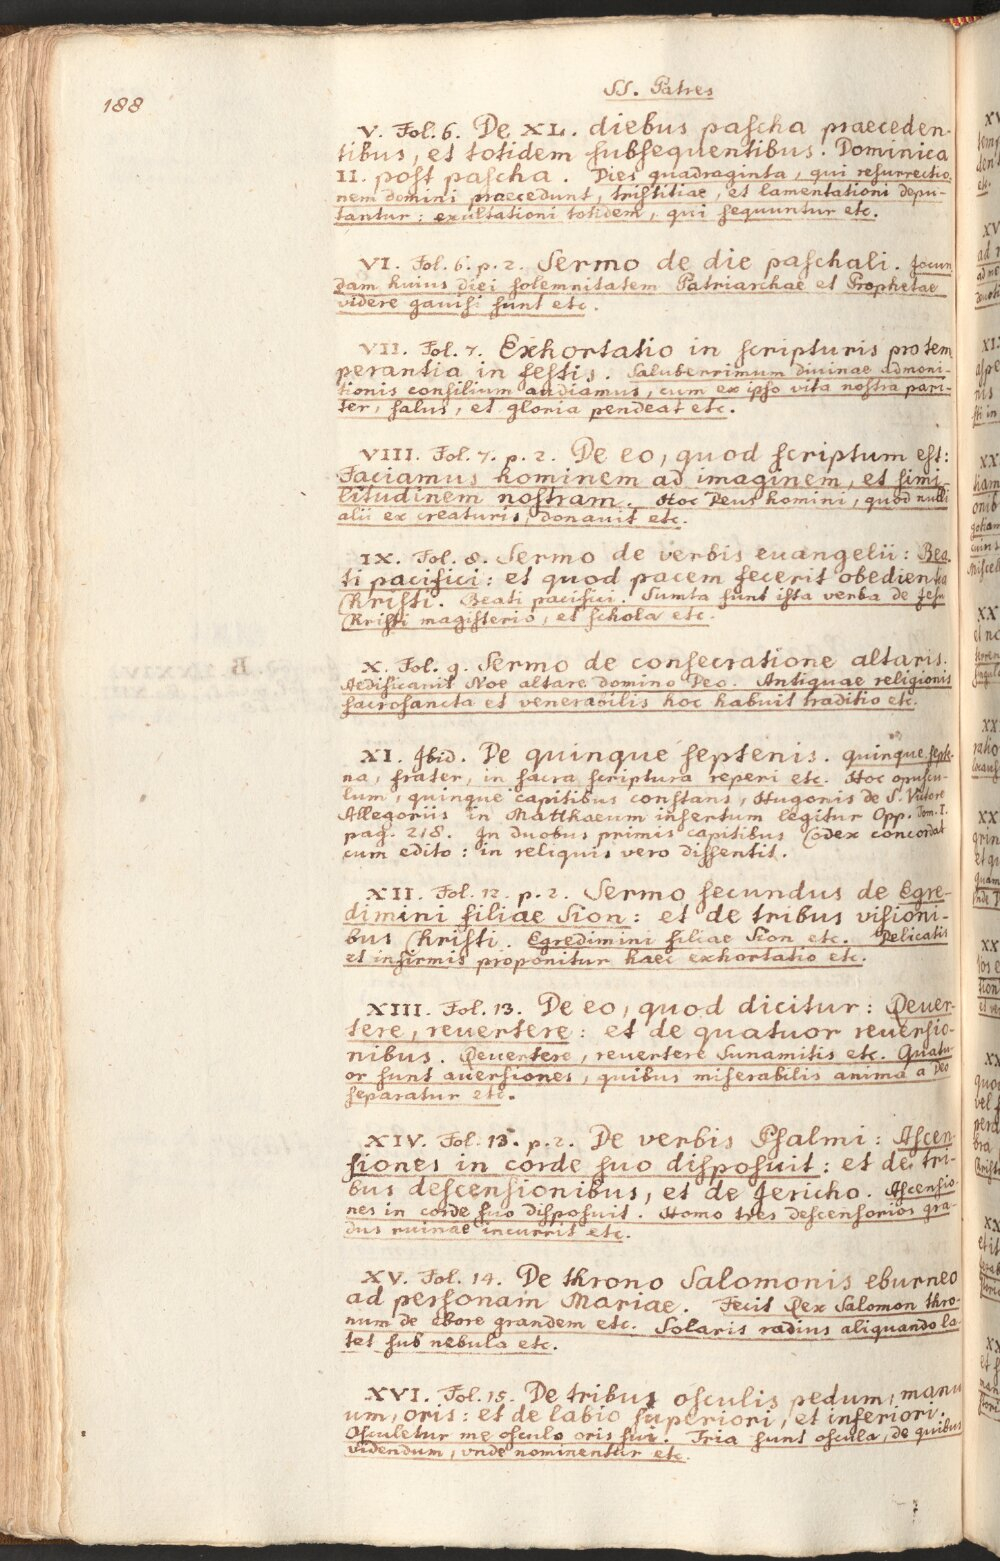 188
SS. Patres
V. Fol. 6. De XL. diebus pascha praeceden-
tibus, et totidem subsequentibus. Dominica
II. post pascha. Dies quadraginta, qui resurrectio-
nem domini praecedunt, tristitiae, et lamentationi depu-
tantur: exultationi totidem, qui sequuntur etc.
VI. Fol. 6. p. 2. Sermo de die paschali. Jocun
dam huius diei solemnitatem Patriarchae et Prophetae
videre gavisi sunt etc.
VII. Fol. 7. Exhortatio in scripturis pro tem
perantia in festis. Saluberrimum divinae admoni-
tionis consilium audiamus, cum ex ipso vita nostra pari-
ter, salus, et gloria pendeat etc.
VIII. Fol. 7. p. 2. De eo, quod scriptum est:
Faciamus hominem ad imaginem, et simi-
litudinem nostram. Hoc Deus homini, quod nulli
alii ex creaturis, donauit etc.
IX. Fol. 8. Sermo de verbis euangelii: Bea-
ti pacifici: et quod pacem fecerit obedientia
Christi. Beati pacifici. Sumta sunt ista verba de Jesu
Christi magisterio, et schola etc.
X. Fol. 9. Sermo de consecratione altaris.
Aedificauit Noe altare domino Deo. Antiquae religionis
sacrosancta et venerabilis hoc habuit traditio etc.
XI. Ibid. De quinque septenis. Quinque septe-
na, frater, in sacra scriptura reperi etc. Hoc opuscu-
lum, quinque capitibus constans, Hugonis de S. Victore
Allegoriis in Matthaeum insertum legitur Opp. Tom. I.
pag. 218. In duobus primis capitibus Codex concordat
cum edito: in reliquis vero dissentit.
XII. Fol. 12. p. 2. Sermo secundus de Egre-
dimini filiae Sion: et de tribus visioni-
bus Christi. Egredimini filiae Sion etc. Delicatis
et infirmis proponitur haec exhortatio etc.
XIII. Fol. 13. De eo, quod dicitur: Reuer-
tere, reuertere: et de quatuor reuersio-
nibus. Reuertere, reuertere Sunamitis etc. Quatu-
or sunt auersiones, quibus miserabilis anima a Deo
separatur etc.
XIV. Fol. 13. p. 2. De verbis Psalmi: Ascen-
siones in corde suo disposuit: et de tri-
bus descensionibus, et de Jericho. Ascensio-
nes in corde suo disposuit. Homo tres descensorios gra-
dus ruinae incurrit etc.
XV. Fol. 14. De throno Salomonis eburneo
ad personam Mariae. Fecit Rex Salomon thro-
num de ebore grandem etc. Solaris radius aliquando la-
tet sub nebula etc.
XVI. Fol. 15. De tribus osculis pedum, manu
um, oris: et de labio superiori, et inferiori.
Osculetur me osculo oris sui. Tria sunt oscula, de quibus
videndum, vnde nominentur etc.